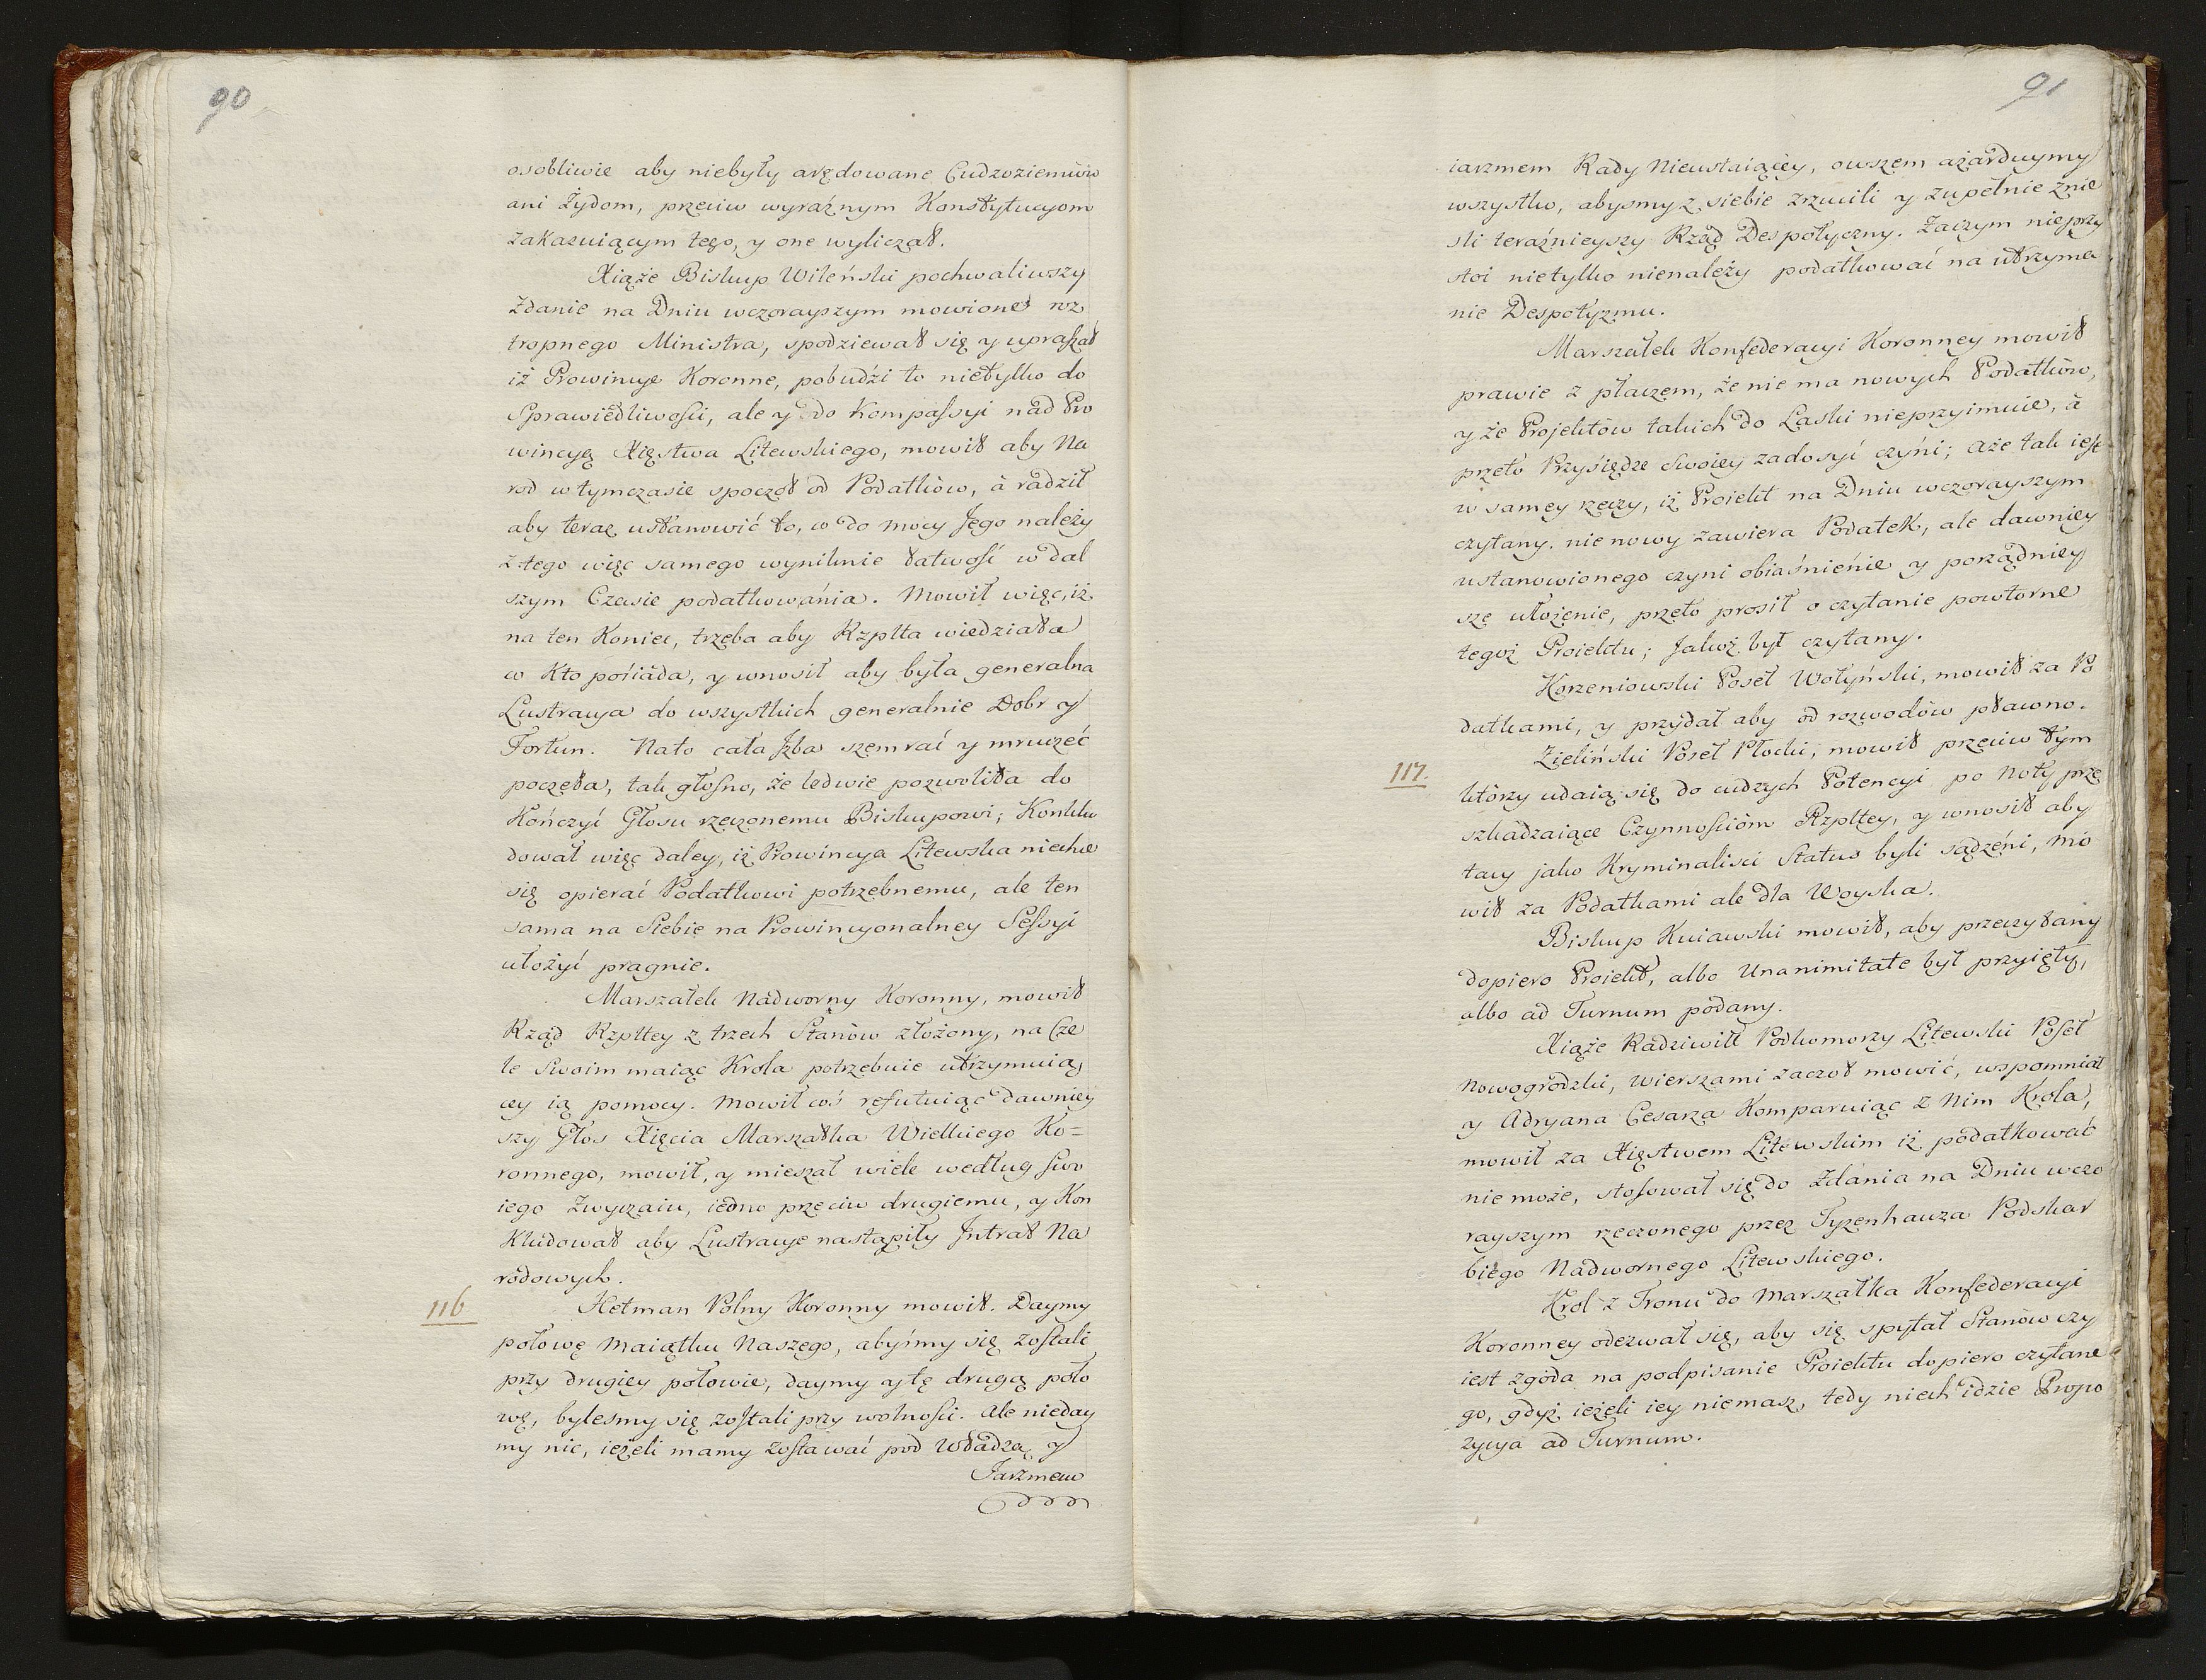 90
osobliwie aby niebyły arędowane Cudzoziemców
ani Żydom, przeciw wyraźnym Konstytucyom
zakazuiącym tego, y one wyliczał.
Xiąże Biskup Wileński pochwaliwszy
Zdanie na Dniu wczorayszym mowione roz
tropnego Ministra, spodziewał się y upraszał
iż Prowincye Koronne, pobudźi to nietylko do
Sprawiedliwości, ale y do Kompassyi nad Pro
wincyą Xięstwa Litewskiego, mowił aby Na
rod w tymczasie spoczął od Podatków, à radził
aby teraz ustanowić to, co do mocy Jego należy
z tego więc samego wyniknie łatwość w dal
szym Czasie podatkowánia. Mowił więc, iż
na ten Koniec, trzeba aby Rzplta wiedziała
co Kto pośiáda, y wnosił aby była generalna
Lustracya do wszystkich generalnie Dobr y
Fortun. Nato cała Jzba szemrać y mruczeć
poczęła, tak głośno, że ledwie pozwoliła do
Kończyć Głosu rzeczonemu Biskupowi; Konklu
dował więc daley, iż Prowincya Litewska niechce
się opierać Podatkowi potrzebnemu, ale ten
sama na Siebie na Prowincyonalney Sessyi
ułożyć pragnie.
Marszałek Nadworny Koronny, mowił
Rząd Rzpltey z trzech Stanów złożony, na Cze
le Swoim maiąc Krola potrzebuie utrzymuią
cey ią pomocy. Mowił coś refutuiąc dawniey
szy Głos Xięcia Marszałka Wielkiego Ko=
ronnego, mowił, y mieszał wiele według swo
iego Zwyczaiu, iedno przeciw drugiemu, y Kon
kludował aby Lustracye nastąpiły Jntrat Na
rodowych.
116
Hetman Polny Koronny mowił. Daymy
połowę Maiątku Naszego, abyśmy się zostali
przy drugiey połowie, daymy ajtę drugą poło
wę, bylesmy się zostali przy wolności. Ale nieday
my nic, ieżeli mamy zostawać pod Władzą y
Jarzmem
91
iarzmem Rady Nieustaiącéy, owszem ażarduymy
wszystko, abysmy z siebie zrzucili y zupełnie znie
śli teraźnieyszy Rząd Despotyczny. Zaczym nieprzy
stoi nietylko nienależy podatkować na utrzyma
nie Despotyzmu.
Marszałek Konfederacyi Koronney mowił
prawie z płaczem, że nie ma nowych Podatków,
y że Projektów takich do Laski nieprzyimuie, à
przeto Przysiędze Swoiey zadosyć czyni; aże tak iest
w samey rzeczy, iż Proiekt na Dniu wczorayszym
czytany. nie nowy zawiera Podatek, ale dawniey
ustanowionego czyni obiaśnienie y porządniey
sze ułożenie, przeto prosił o czytanie powtorne
tegoż Proiektu; Jakoż był czytany.
Korzeniowski Poseł Wołyński, mowił za Po
datkami, y przydał aby od rozwodów płacono.
117.
Zieliński Poseł Płocki, mowił przeciw tym
którzy udaią się do cudzych Potencyi po Noty prze
szkadzaiące Czynnościóm Rzpltey, y wnosił aby
tacy jako Kryminaliści Status byli sądzeni, mo
wił za Podatkami ale dla Woyska.
Biskup Kuiawski mowił, aby przeczytany
dopiero Proiekt, albo Unanimitate był przyięty,
albo ad Turnum podany.
Xiąże Radziwiłł Podkomorzy Litewski Poseł
Nowogrodzki, wierszami zaczoł mowić, wspomniał
y Adryana Cesarza Komparuiąc z Nim Krola,
mowił za Xięstwem Litewskim iż podatkować
nie może, stosował się do Zdania na Dniu wczo
rayszym rzeczonego przez Tyzenhauza Podskar
biego Nadwornego Litewskiego.
Krol z Tronu do Marszałka Konfederacyi
Koronney odezwał się, aby się spytał Stanów czy
iest zgoda na podpisanie Proiektu dopiero czytane
go, gdyż ieżeli iey niemasz, tedy niech idzie Propo
zycya ad Turnum.